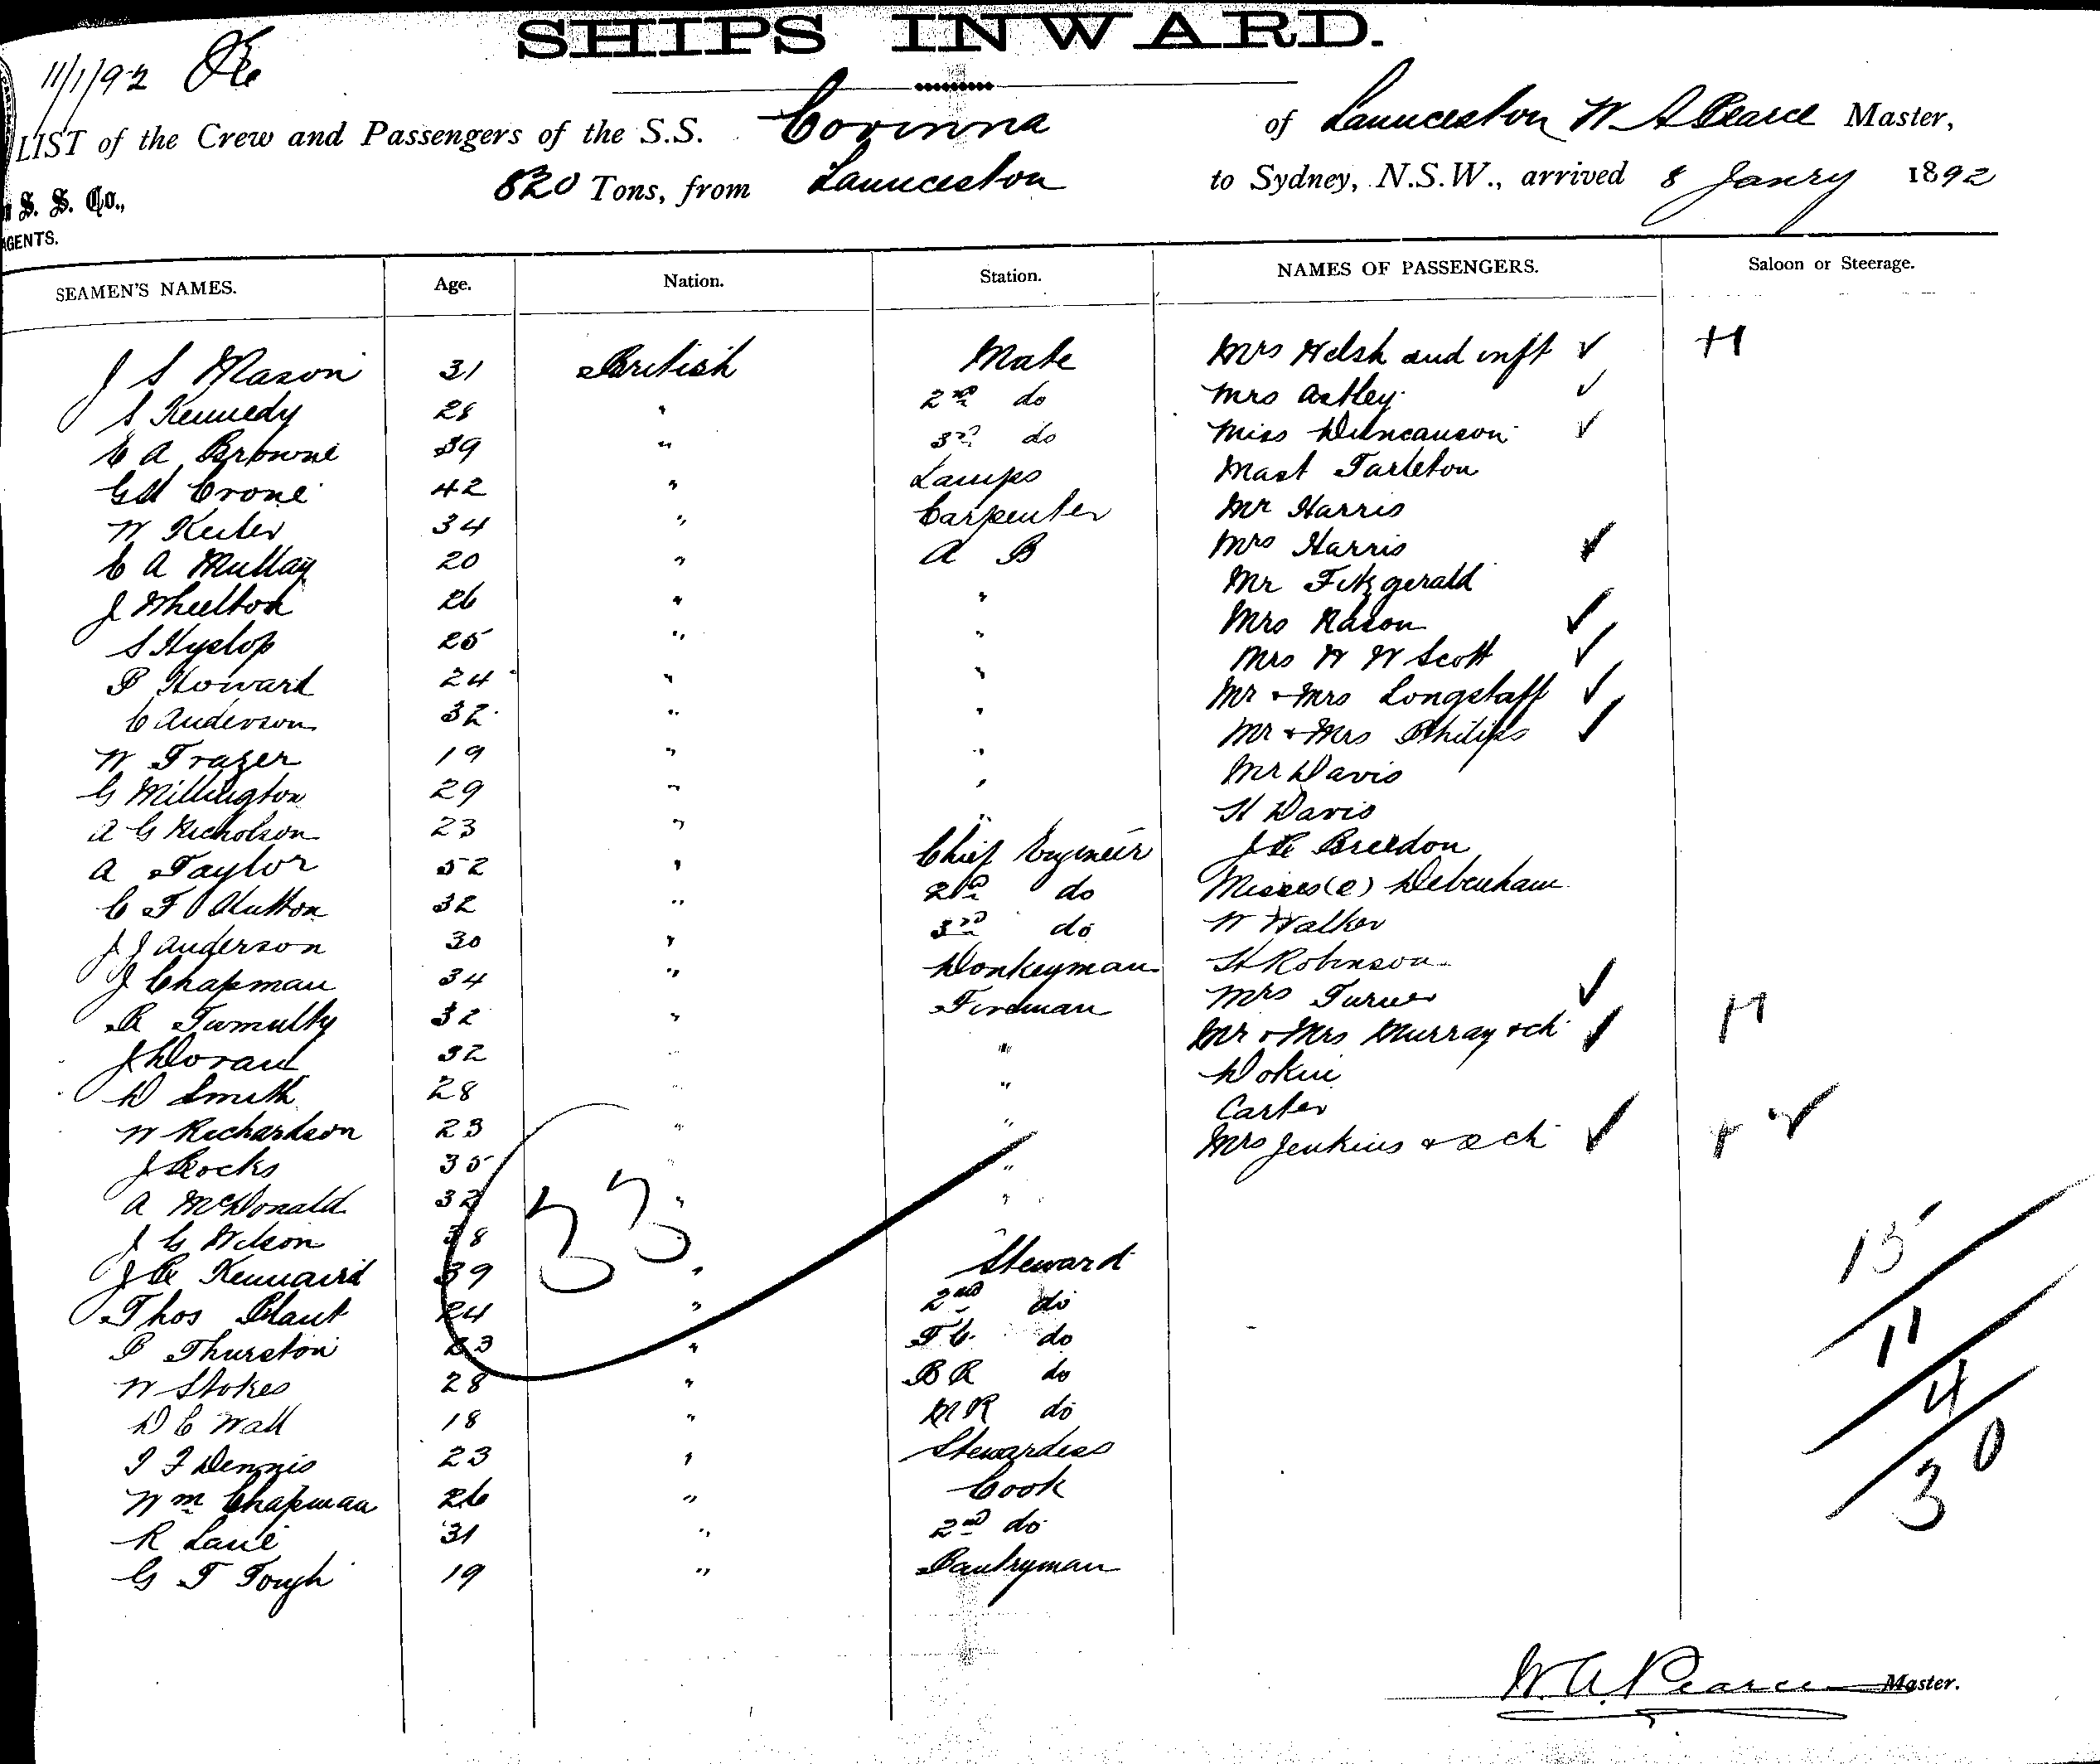 SHIPS INWARD.
11/1/92
LIST of the Crew and Passengers of the S.S. Corinna of Launceston W A Pearce Master,
S. S. Co., 820 Tons, from Launceston to Sydney, N.S.W., arrived 8 Janry 1892
AGENTS.
SEAMEN'S NAMES. Age. Nation. Station. NAMES OF PASSENGERS. Saloon or Steerage.
J S Mason 31 British Mate Mrs Welsh and inft ✓ H
S Kennedy 28 " 2nd do Mrs Astley ✓
E A Browne 39 " 3rd do Miss Duncanson ✓
G H Crone 42 " Lamps Mast Tarleton
W Keiler 34 " Carpenter Mr Harris
C A Mullay 20 " A B Mrs Harris ✓
J Wheelton 26 " " Mr Fitzgerald
S Hyslop 25 " " Mrs Rason ✓
P Howard 24 " " Mrs W W Scott ✓
C Anderson 32 " " Mr & Mrs Longstaff ✓
W Frazer 19 " " Mr & Mrs Philips ✓
G Millington 29 " " Mr Davis
A G Nicholson 23 " " H Davis
A Taylor 52 " Chief Engineer J R Breedon
C F Hutton 32 " 2nd do Misses (2) Debenham
J J Anderson 30 " 3rd do W Walker
J Chapman 34 " Donkeyman H Robinson
R Tumulty 32 " Fireman Mrs Turner ✓
J Doran 32 " " Mr & Mrs Murray & ch ✓ H
D Smith 28 " "
W Richardson 23 " " Carter
J Cocks 35 " " Mrs Jenkins & 2 ch ✓
A McDonald 32 " "
J G Wilson 38 "
33
J R Kennaird 39 " Steward
Thos Plant 24 " 2nd do
P Thurston 23 " F C do
W Stokes 28 " B R do
D E Wall 18 " M R do
I F Dennis 23 " Stewardess
Wm Chapman 26 " Cook
R Lane 31 " 2nd do
G T Tough 19 " Pantryman
15
11
4
30
W. A. Pearce Master.